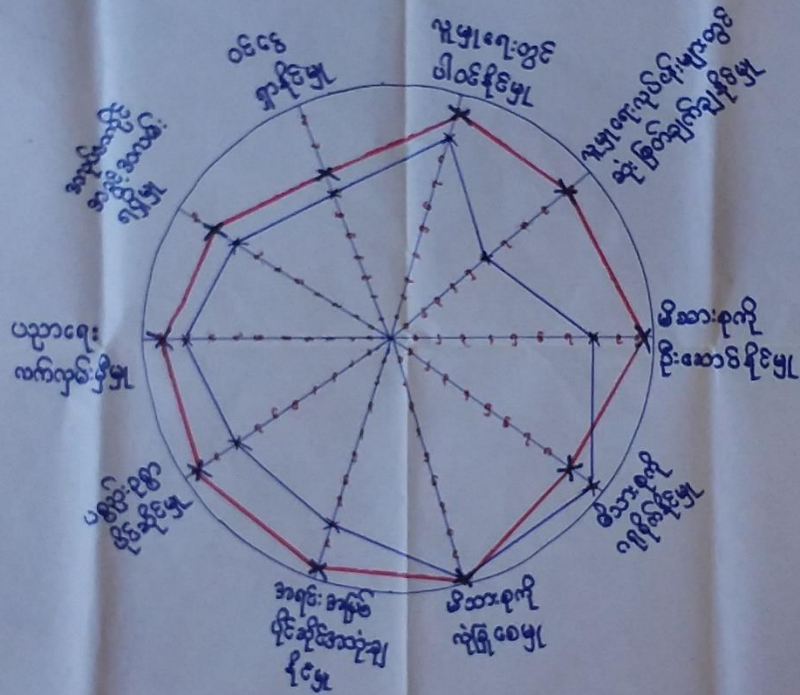 ဝင်ငွေ
ရှာနိုင်မှု
လူမှုရေးတွင်
ပါဝင်နိုင်မှု
လူမှုရေးလုပ်ငန်းများတွင်
ဆုံးဖြတ်ချက်ချနိုင်မှု
မိသားစုကို
ဦးဆောင်နိုင်မှု
မိသားစုကို
ဂရုစိုက်နိုင်မှု
မိသားစုကို
လုံခြုံစေမှု
အရင်းအမြစ်
ပိုင်ဆိုင်အသုံးချ
နိုင်မှု
ပစ္စည်းဥစ္စာ
ပိုင်ဆိုင်မှု
ပညာရေး
လက်လှမ်းမှီမှု
ရရှိမှု